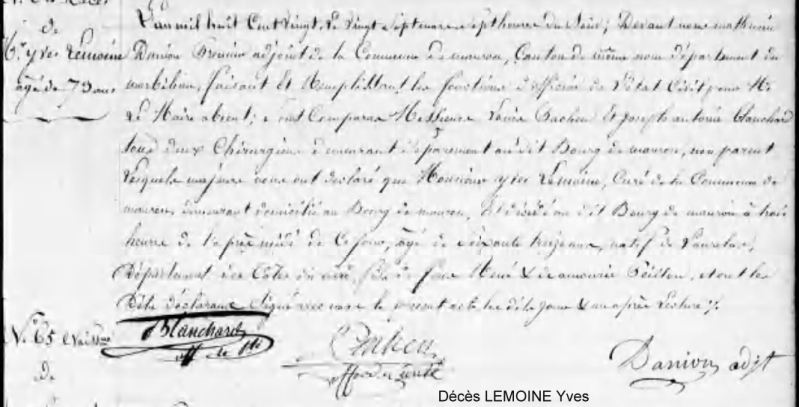 de
Mr. yves Lemoine
âgé de 73 ans
L'an mil huit Cent vingt, le vingt Septembre Sept heures du Soir; Devant nous mathurin
Danion Premier adjoint de la Commune de mauron, Canton de même nom département du
morbihan, faisant Et Remplissant les fonctions d'officier de l'état Civil pour Mr.
Le Maire absent; Sont Comparus Messieurs Louis Cacheu Et joseph antoine blanchard
tous deux Chirurgiens demeurant Séparément au dit Bourg de mauron, non parent
Lesquels majeurs nous ont déclaré que Monsieur yves Lemoine, Curé de la Commune de
mauron, demeurant domicilié au Bourg de mauron, Est décédé au dit Bourg de mauron à trois
heures de l'après midi de Ce jour, âgé de Soixante treize ans, natif de
Département des Côtes du nord, fils de feus René & de et ont les
Dits déclarants Signé avec nous le présent acte, les dits jour & an après Lecture ./.
blanchard
Cacheu
Danion adjt
N.° 65 Naissance
de
Décès LEMOINE Yves